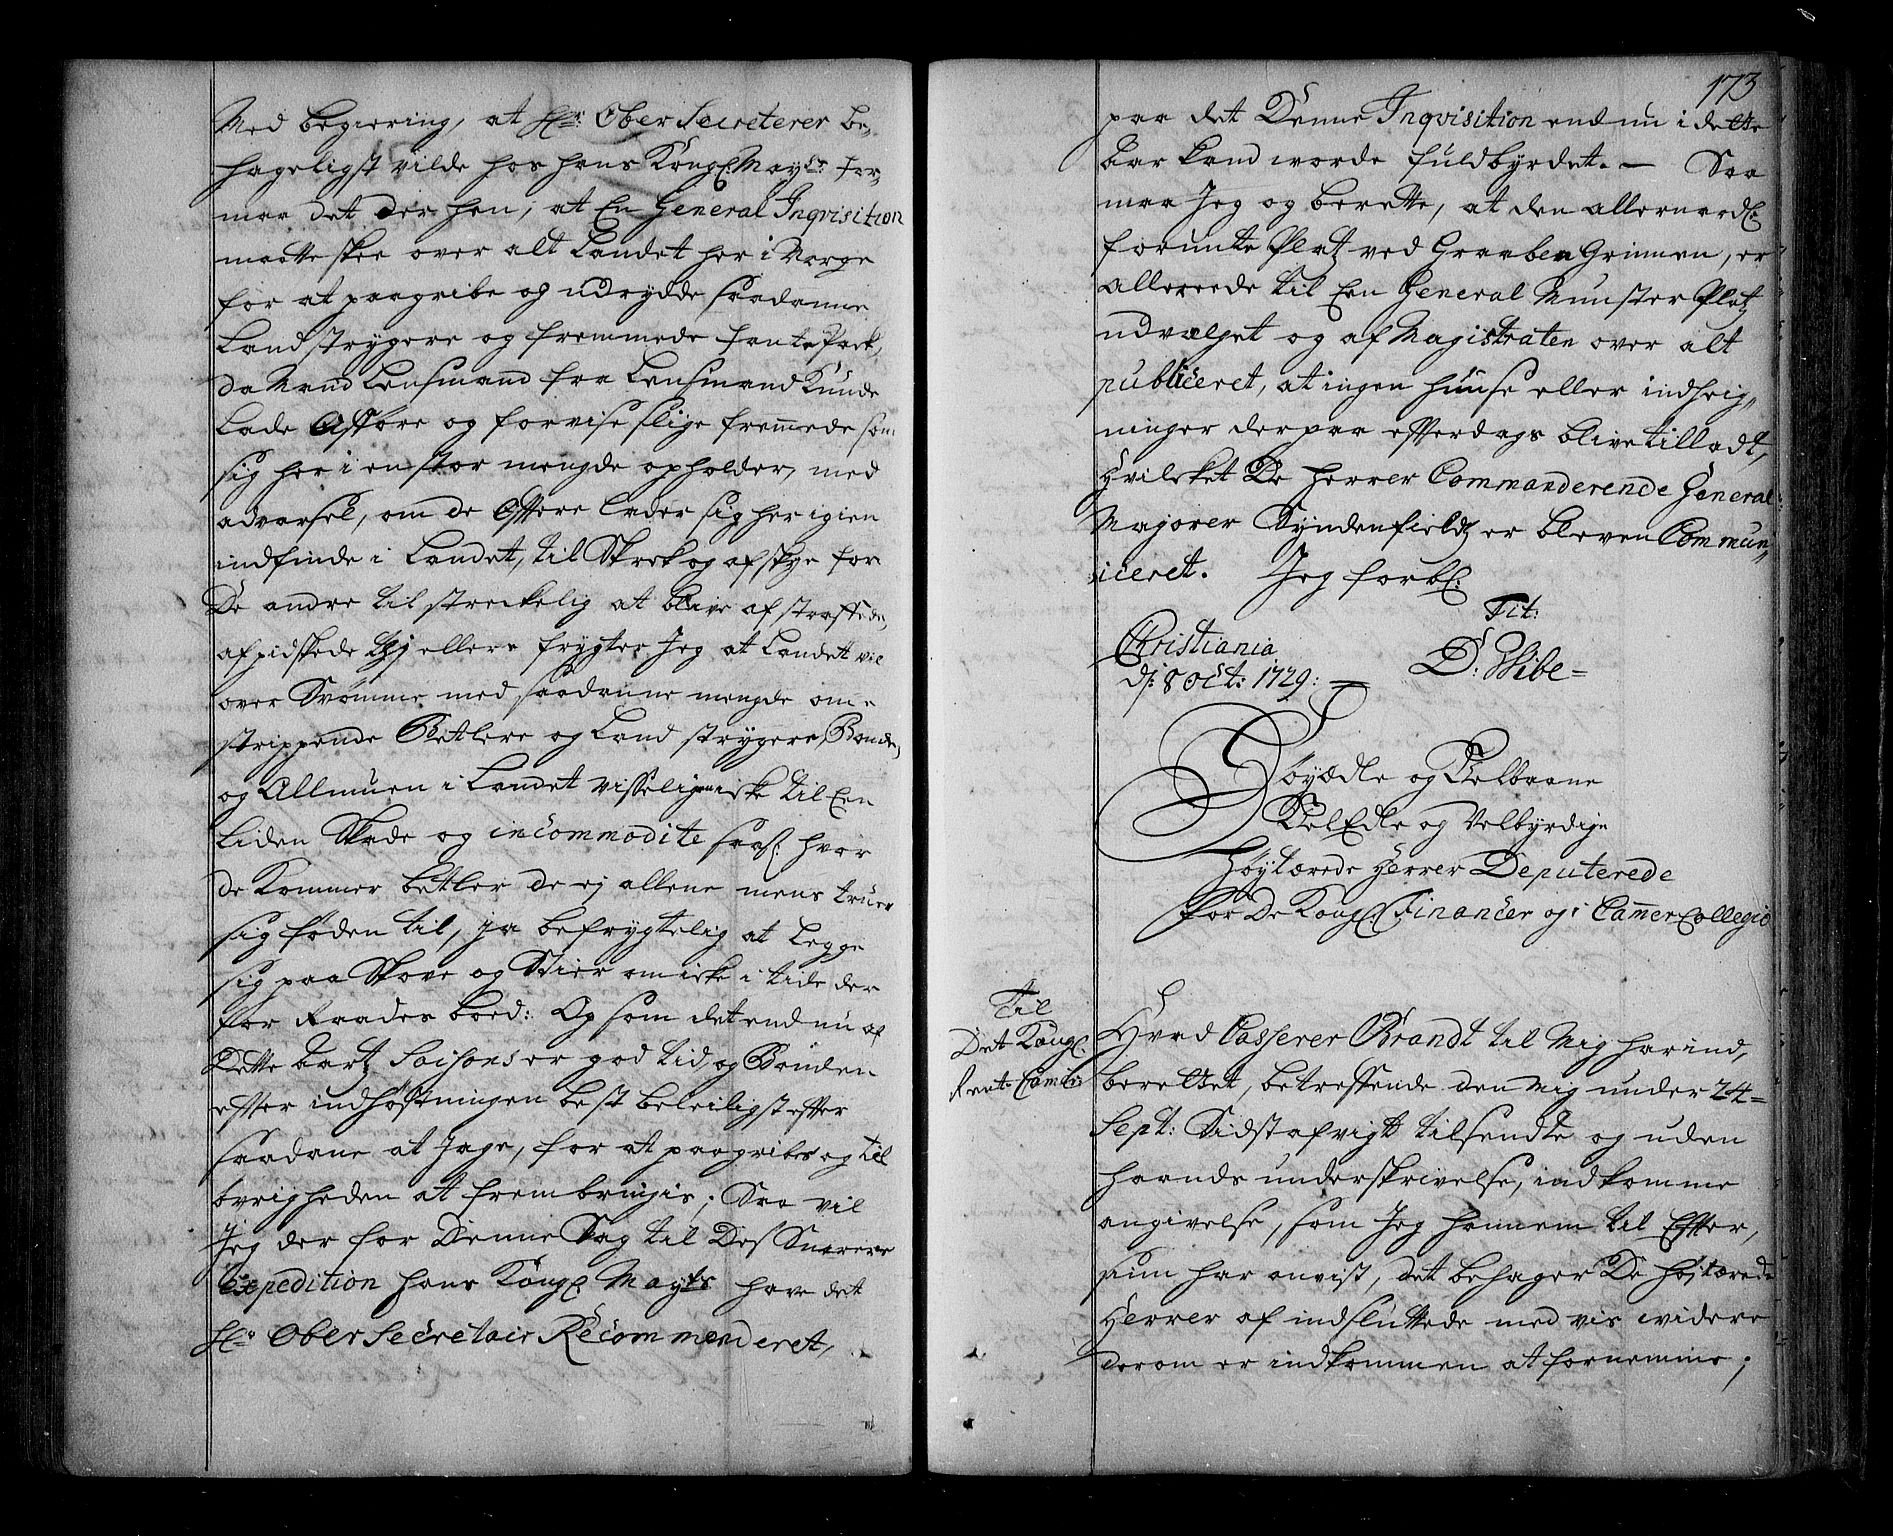 Med begiering, at Hr: Ober Secreterer be„
hageligst vilde hos hans Kongl: Mayst: for„
maa det der hen, at En General Inqvisition
maatte skee over alt Landet her i Norge
for at paagribe og udrydde saadanne
Landstrygere og fremmede fante Pack,
da Mand Lensmand fra Lensmand Kunde
Lade Affore og forvise slige fremmede som
sig her i en stor mengde opholder, med
advarsel, om de Oftere lader sig her igien
indfinde i Landet, til Skrek og afskye for
De andre til streckelig at blive afstraffede,
afpidskede ellers frygter Jeg at Landet vil
over Svømme med saadanne mengde om„
strippende Betlere og Land strygere, Bonde,
og Allmuen i Landet visseligen icke til Een
liden Skade og incommodite saasl: hvor
de Kommer betler de ej allene mens truer
sig føden til, ja befrygtelig at Legge
sig paa Skove og Stier om icke i tide der
for Raades boed: Og som det end nu af
Dette Aartz Saisons er god tid, og Bønden
efter indhøstningen best beleiligst efter
saadane at Jage, for at paagribes og til
øvrigheden at frembringis; Saa vil
Jeg der for Denne Sag til Des Snarere
Expedition hans Kongl: Mayts have det
Hr: Ober Secretair Recommenderet,
173
paa det Denne Inqvisition end nu i dette
Aar kand worde fuldbyrdet. — Saa
maa Jeg og berette, at den allernaadl:
forunte Plat ved Graabeen Grinnen, er
Allereede til Een General Munster Platz
udvalget og af Magistraten over alt
publiceret, at ingen huuse eller indheig„
ninger derpaa efferdags blive tilladt,
Hvilcket De Herrer Commanderende General:
Majorer Syndenfieldz er bleven Commun„
iceret. Jeg forbl:
Tit:
Christiania
dj: 8 Oct: 1729: — D: Wibe=
Høyædle og Velbaarne
VelEdle og Velbyrdige
Høytærede Herrer Deputerede
for De Kongl: Financer og i Cammer Collegio
Til
Det Kongl:
Rente Camer
Hvad Casserer Brandt til Mig har ind„
berettet, betreffende den Mig under 24=
Sept: Sidst afvigt tilsendte og uden
haands underskrivelse, indkomme
angivelse, som Jeg hannem til Efter„
siun har anvist, det behager De højtærede
Herrer af indsluttede med vis widere
derom er indkommen at fornemme;